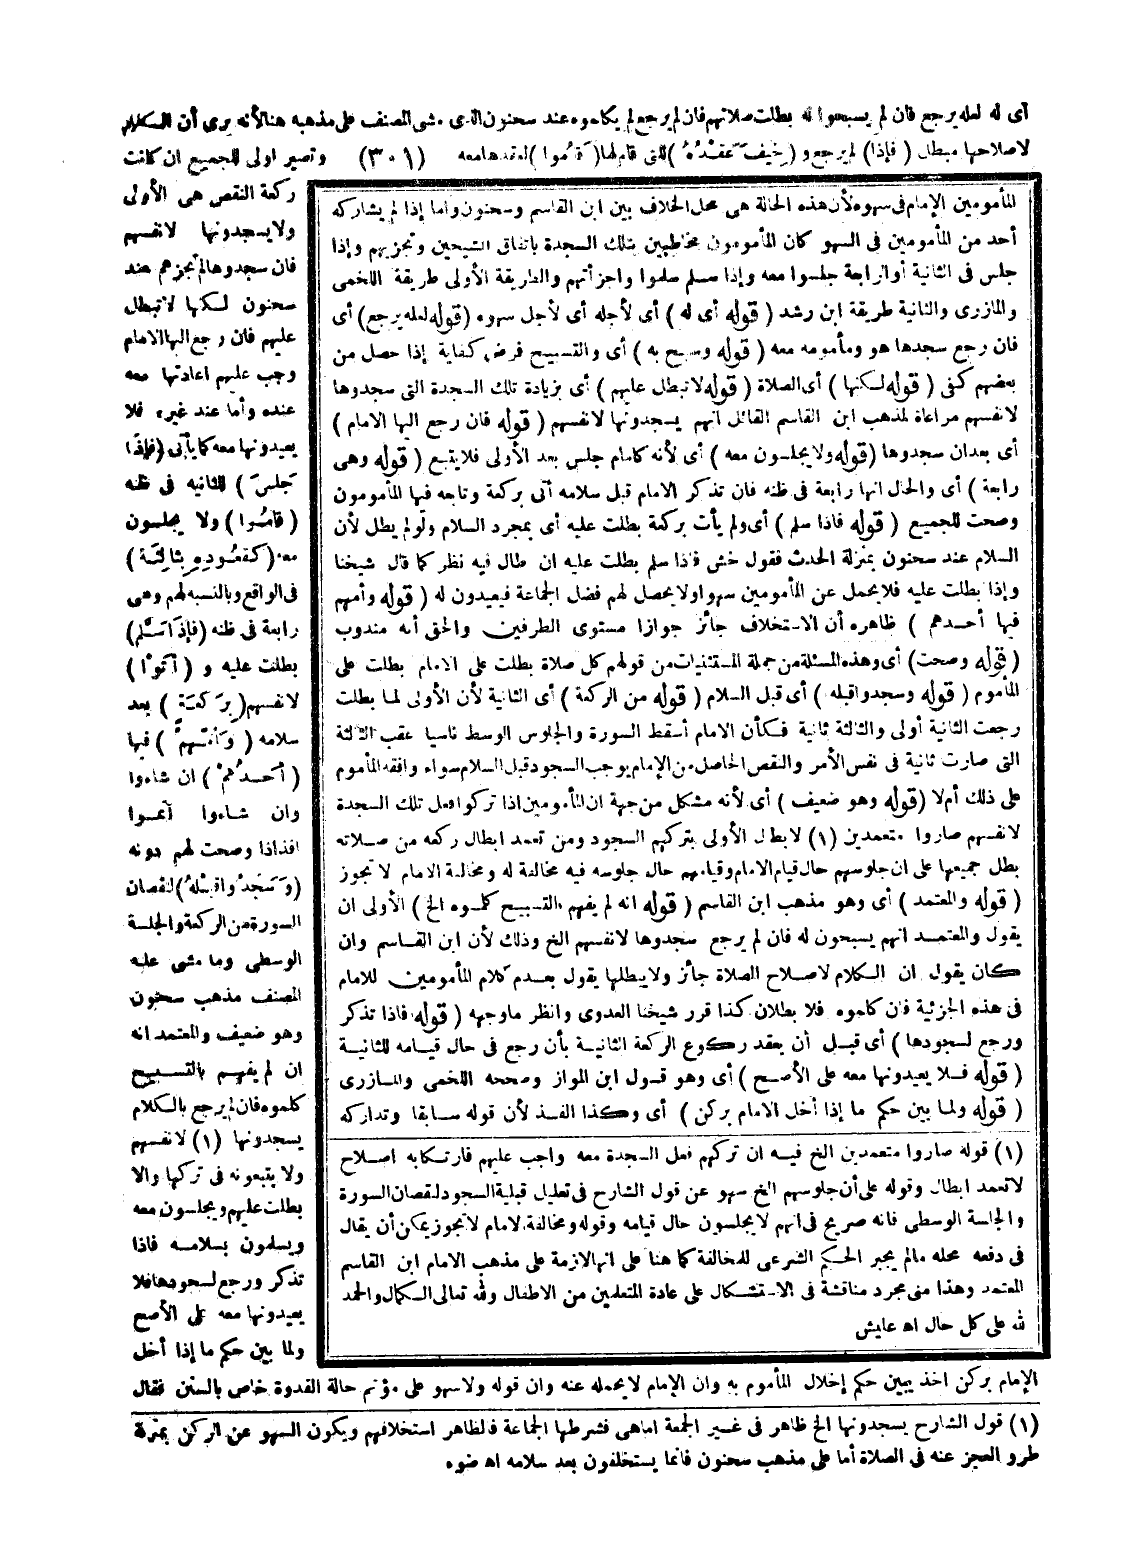 أى له لعله يرجع فان لم يسبحوا له بطلت صلاتهم فان لم يرجع لم يكلموه عند سحنون الذى مشى المصنف على مذهبه هنا لأنه يرى أن الكلام
لاصلاحها مبطل (فإذا) لم يرجع و (خِيفَ عَقْدُهُ) للتى قام لها (قَامُوا) لعقدها معه (٣٠١) وتصير اولى للجميع ان كانت
ركعة النقص هى الأولى
ولا يسجدونها لانفسهم
فان سجدوها لم تجزهم عند
سحنون لكنها لا تبطل
عليهم فان رجع اليها الامام
وجب عليهم اعادتها معه
عنده وأما عند غيره فلا
يعيدونها معه كما يأتى (فإذا
جَلَسَ) للثانيه فى ظنه
(قَامُوا) ولا يجلسون
معه (كَقُعُودِهِ بِثَالِثَة)
فى الواقع وبالنسبه لهم وهى
رابعة فى ظنه (فإذَا سَلَّمَ)
بطلت عليه و (أتَوْا)
لانفسهم (بِرَكْعَة) بعد
سلامه (وَأَمَّهُمْ) فيها
(أحَدُهُمْ) ان شاءوا
وان شاءوا أتموا
افذاذا وصحت لهم دونه
(وَسَجَدُوا قَبْلَهُ) لنقصان
السورة من الركعة والجلسة
الوسطى وما مشى عليه
المصنف مذهب سحنون
وهو ضعيف والمعتمد انه
ان لم يفهم بالتسبيح
كلموه فان لم يرجع بالكلام
يسجدونها (١) لانفسهم
ولا يتبعونه فى تركها والا
بطلت عليهم ويجلسون معه
ويسلمون بسلامه فاذا
تذكر ورجع لسجودها فلا
يعيدونها معه على الأصح
ولما بين حكم ما إذا أخل
الإمام بركن اخذ يبين حكم إخلال المأموم به وان الإمام لا يحمله عنه وان قوله ولا سهو على مؤتم حالة القدوة خاص بالسنن فقال
المأمومين الإمام فى سهوه لأن هذه الحالة هى محل الخلاف بين ابن القاسم وسحنون واما إذا لم يشاركه
أحد من المأمومين فى السهو كان المأمومون مخاطبين بتلك السجدة باتفاق الشيخين وتجزيهم وإذا
جلس فى الثانية أو الرابعة جلسوا معه وإذا سلم سلموا واجزأتهم والطريقة الأولى طريقة اللخمى
والمازرى والثانية طريقة ابن رشد (قوله أى له) أى لأجله أى لأجل سهوه (قوله لعله يرجع) أى
فان رجع سجدها هو ومأمومه معه (قوله وسبح به) أى والتسبيح فرض كفاية إذا حصل من
بعضهم كفى (قوله لكنها) أى الصلاة (قوله لا تبطل عليهم) أى بزيادة تلك السجدة التى سجدوها
لانفسهم مراعاة لمذهب ابن القاسم القائل انهم يسجدونها لانفسهم (قوله فان رجع اليها الامام)
أى بعد ان سجدوها (قوله ولا يجلسون معه) أى لأنه كامام جلس بعد الأولى فلا يتبع (قوله وهى
رابعة) أى والحال انها رابعة فى ظنه فان تذكر الامام قبل سلامه أتى بركعة وتابعه فيها المأمومون
وصحت للجميع (قوله فاذا سلم) أى ولم يأت بركعة بطلت عليه أى بمجرد السلام ولو لم يطل لأن
السلام عند سحنون بمنزلة الحدث فقول خش فاذا سلم بطلت عليه ان طال فيه نظر كما قال شيخنا
وإذا بطلت عليه فلا يحمل عن المأمومين سهوا ولا يحصل لهم فضل الجماعة فيعيدون له (قوله وأمهم
فيها أحدهم) ظاهره أن الاستخلاف جائز جوازا مستوى الطرفين والحق أنه مندوب
(قوله وصحت) أى وهذه المسئلة من جملة المستثنيات من قولهم كل صلاة بطلت على الامام بطلت على
المأموم (قوله وسجدوا قبله) أى قبل السلام (قوله من الركعة) أى الثانية لأن الأولى لما بطلت
رجعت الثانية أولى والثالثة ثانية فكأن الامام أسقط السورة والجلوس الوسط ناسيا عقب الثالثة
التى صارت ثانية فى نفس الأمر والنقص الحاصل من الإمام يوجب السجود قبل السلام سواء وافقه المأموم
على ذلك أم لا (قوله وهو ضعيف) أى لأنه مشكل من جهة ان المأمومين اذا تركوا فعل تلك السجدة
لانفسهم صاروا متعمدين (١) لابطال الأولى بتركهم السجود ومن تعمد ابطال ركعه من صلاته
بطل جميعها على ان جلوسهم حال قيام الامام وقيامهم حال جلوسه فيه مخالفة له ومخالفة الامام لا تجوز
(قوله والمعتمد) أى وهو مذهب ابن القاسم (قوله انه لم يفهم بالتسبيح كلموه الخ) الأولى ان
يقول والمعتمد انهم يسبحون له فان لم يرجع سجدوها لانفسهم الخ وذلك لأن ابن القاسم وان
كان يقول ان الكلام لاصلاح الصلاة جائز ولا يبطلها يقول بعدم كلام المأمومين للامام
فى هذه الجزئية فان كلموه فلا بطلان كذا قرر شيخنا العدوى وانظر ما وجهه (قوله فاذا تذكر
ورجع لسجودها) أى قبل أن يعقد ركوع الركعة الثانية بأن رجع فى حال قيامه للثانية
(قوله فلا يعيدونها معه على الأصح) أى وهو قول ابن المواز وصححه اللخمى والمازرى
(قوله ولما بين حكم ما إذا أخل الامام بركن) أى وكذا الفذ لأن قوله سابقا وتداركه
(١) قوله صاروا متعمدين الخ فيه ان تركهم فعل السجدة معه واجب عليهم فارتكابه اصلاح
لا تعمد ابطال وقوله على أن جلوسهم الخ سهو عن قول الشارح فى تعليل قبلية السجود لنقصان السورة
والجلسة الوسطى فانه صريح فى انهم لا يجلسون حال قيامه وقوله ومخالفة الامام لا تجوز يمكن أن يقال
فى دفعه محله مالم يجبر الحكم الشرعى للمخالفة كما هنا على انها لازمة على مذهب الامام ابن القاسم
المعتمد وهذا منى مجرد مناقشة فى الاستشكال على عادة المتعلمين من الاطفال ولله تعالى الكمال والحمد
لله على كل حال اه عايش
(١) قول الشارح يسجدونها الخ ظاهر فى غير الجمعة اما هى فشرطها الجماعة فالظاهر استخلافهم ويكون السهو عن الركن بمنزلة
طرو العجز عنه فى الصلاة أما على مذهب سحنون فانما يستخلفون بعد سلامه اه ضوء